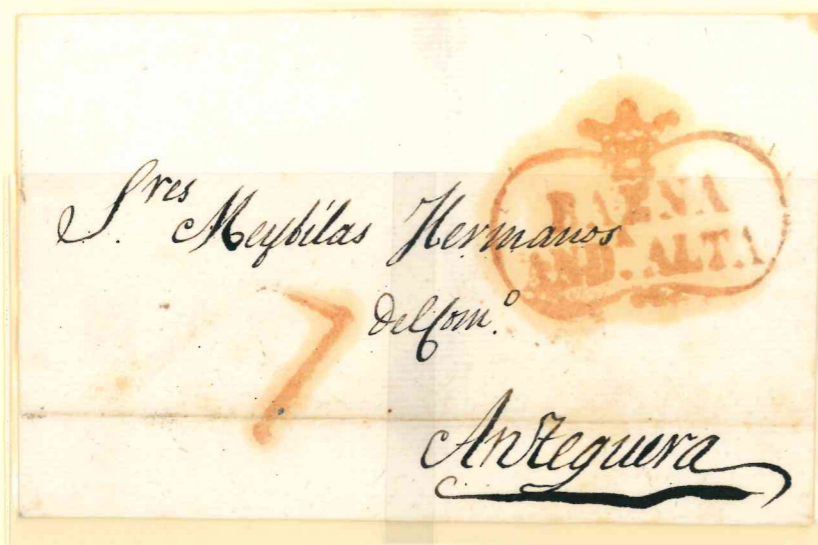 BAENA
AND.ª ALTA
S.res Meybilas Hermanos
del Com.º
7
Antequera